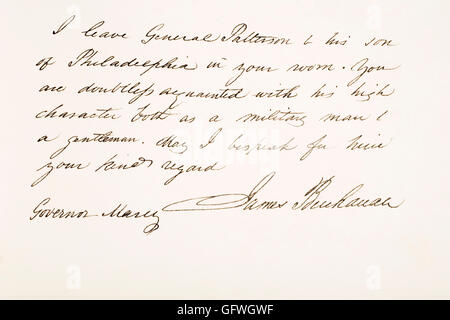 I leave General Patterson & his son
of Philadelphia in your room. You
are doubtless acquainted with his high
character both as a military man &
a gentleman. May I bespeak for him
your kind regard
James Buchanan
Governor Marcy
alamy stock photo
GFWGWF
www.alamy.com